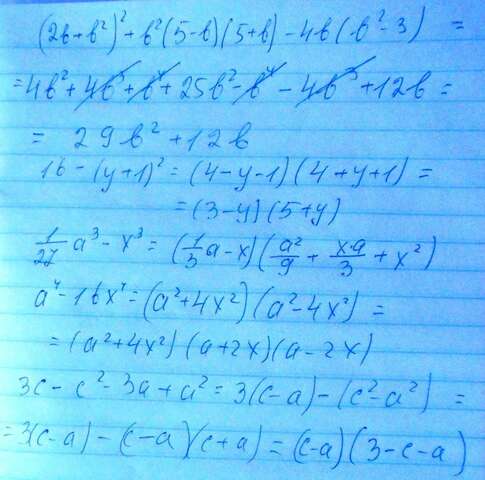 (2b+b²)²+b²(5-b)(5+b)-4b(b²-3) =
=4b²+4b³+b⁴+25b²-b⁴-4b³+12b=
= 29b²+12b
16-(y+1)²=(4-y-1)(4+y+1)=
=(3-y)(5+y)
1/27 a³-x³=(1/3 a-x)(a²/9 + x·a/3 + x²)
a⁴-16x⁴=(a²+4x²)(a²-4x²)=
=(a²+4x²)(a+2x)(a-2x)
3c-c²-3a+a²=3(c-a)-(c²-a²) =
=3(c-a)-(c-a)(c+a)=(c-a)(3-c-a)